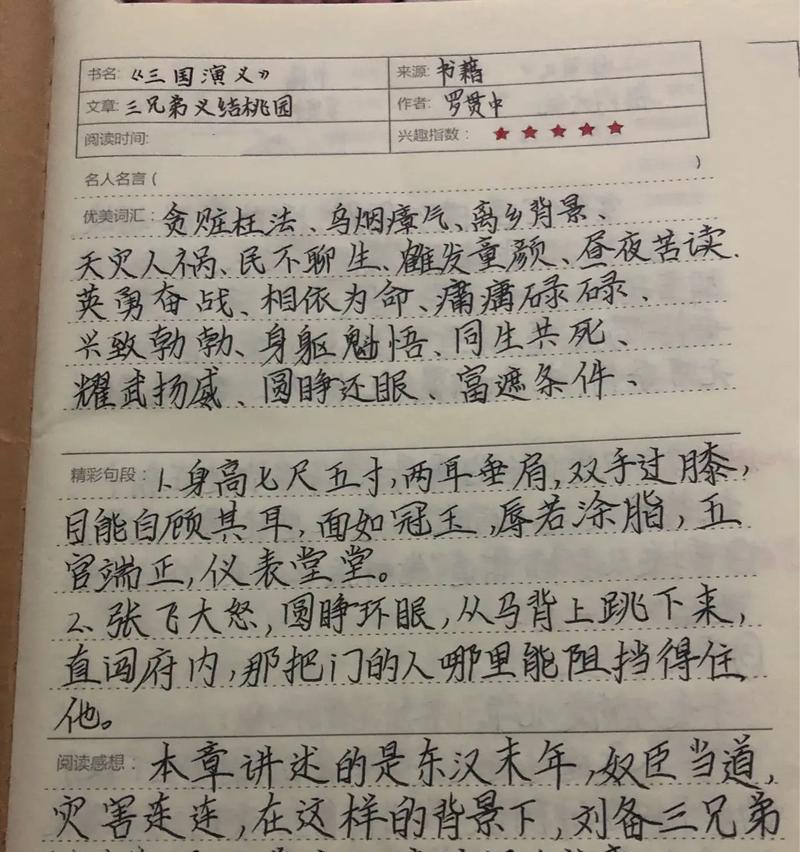 书名:《三国演义》 来源:书籍
文章:三兄弟义结桃园 作者:罗贯中
阅读时间: 兴趣指数:★★★★★
名人名言( )
优美词汇:贪赃枉法、乌烟瘴气、离乡背景、
天灾人祸、民不聊生、鹤发童颜、昼夜苦读.
英勇奋战、相依为命、庸庸碌碌、
兴致勃勃、身躯魁悟、同生共死、
耀武扬威、圆睁还眼、富遮条件、
精彩句段:1.身高七尺五寸,两耳垂肩,双手过膝,
目能自顾其耳,面如冠玉,唇若涂脂,五
官端正,仪表堂堂。
2、张飞大怒,圆睁环眼,从马背上跳下来,
直闯府内,那把门的人哪里能阻挡得住
他。
阅读感想:本章讲述的是东汉末年,奴臣当道,
灾害连连,在这样的背景下,刘备三兄弟